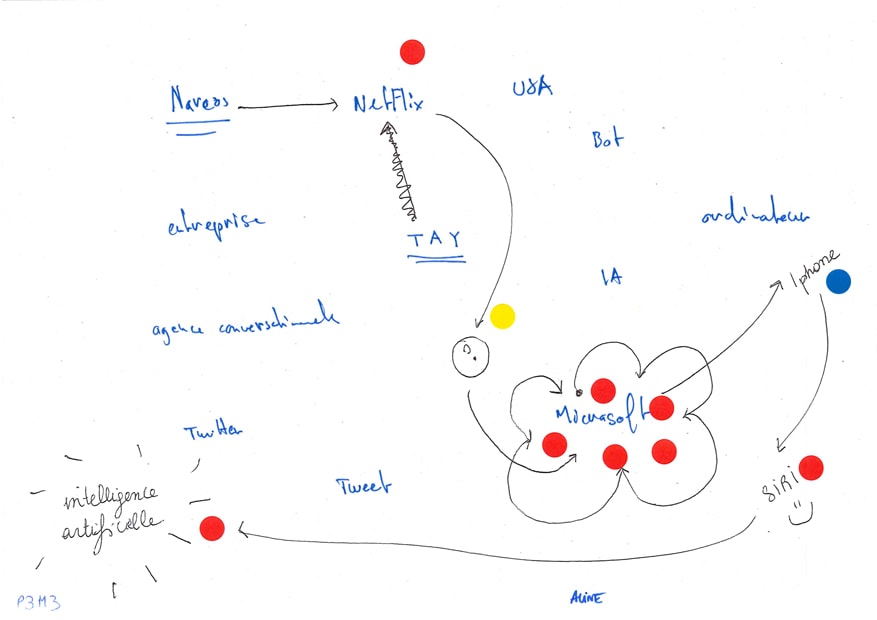 Narcos
NetFlix
USA
Bot
entreprise
ordinateur
TAY
IA
Iphone
agence conversationnelle
?
Microsoft
Twitter
Tweet
SiRi
intelligence
artificielle
P3M3
ALINE